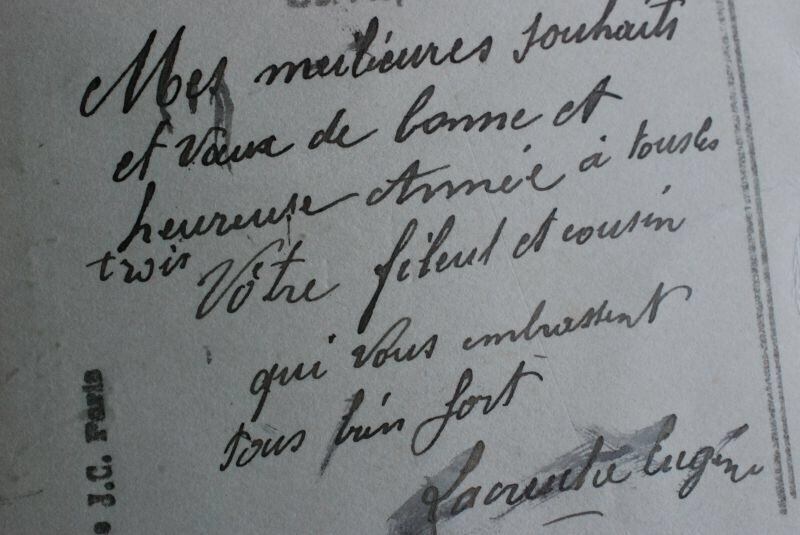 Mes meilieures souhaits
et vœux de bonne et
heureuse Année à tous les
trois
Vôtre fileul et cousin
qui vous embrassent
tous bien fort
Eugène
J.C. Paris